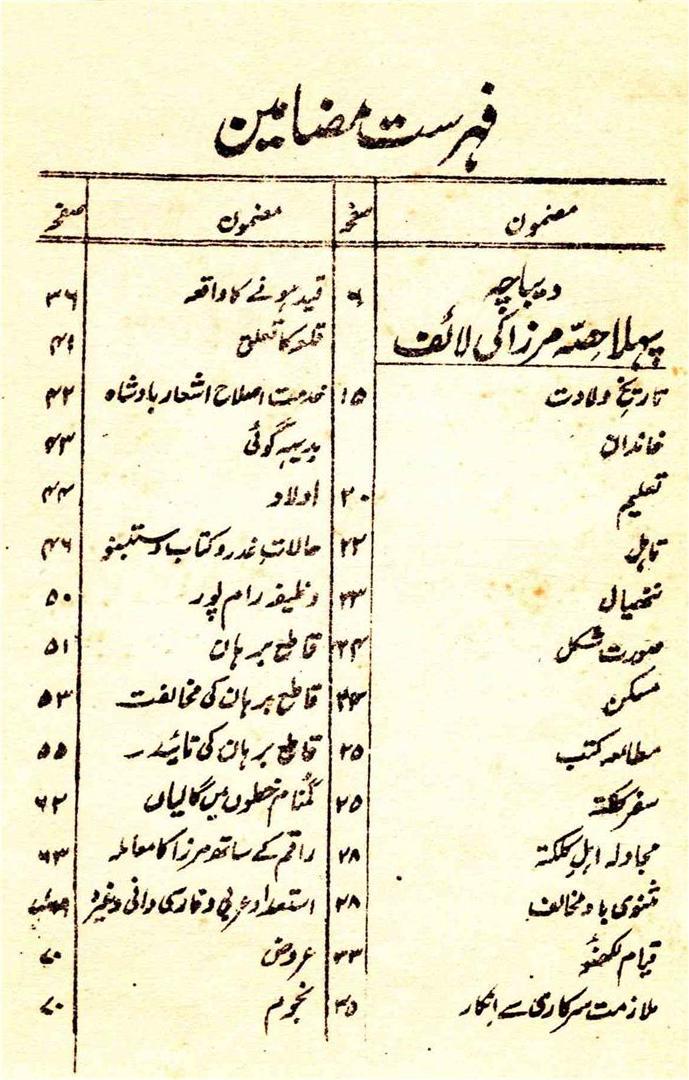 فہرست مضامین
مضمون صفحہ
دیباچہ ۶
پہلا حصّہ مرزا کی لائف
تاریخ ولادت ۱۵
خاندان
تعلیم ۲۰
تاہل ۲۲
ننھیال ۲۳
صورت شکل ۲۴
مسکن ۲۴
مطالعہ کتب ۲۵
سفر کلکتہ ۲۵
مجادلہ اہلِ کلکتہ ۲۸
مثنوی باد مخالف ۲۸
قیام لکھنؤ ۳۳
ملازمت سرکاری سے انکار ۳۵
مضمون صفحہ
قید ہونے کا واقعہ ۳۶
قلعہ کا تعلق ۴۱
خدمت اصلاح اشعار بادشاہ ۴۲
بدیہہ گوئی ۴۳
اولاد ۴۴
حالاتِ غدر و کتاب دستنبو ۴۶
وظیفہ رام پور ۵۰
قاطع برہان ۵۱
قاطع برہان کی مخالفت ۵۳
قاطع برہان کی تائید ۵۵
گمنام خطوں میں گالیاں ۶۲
راقم کے ساتھ مرزا کا معاملہ ۶۳
استعداد عربی و فارسی دانی وغیرہ
عروض ۷۰
نجوم ۷۰